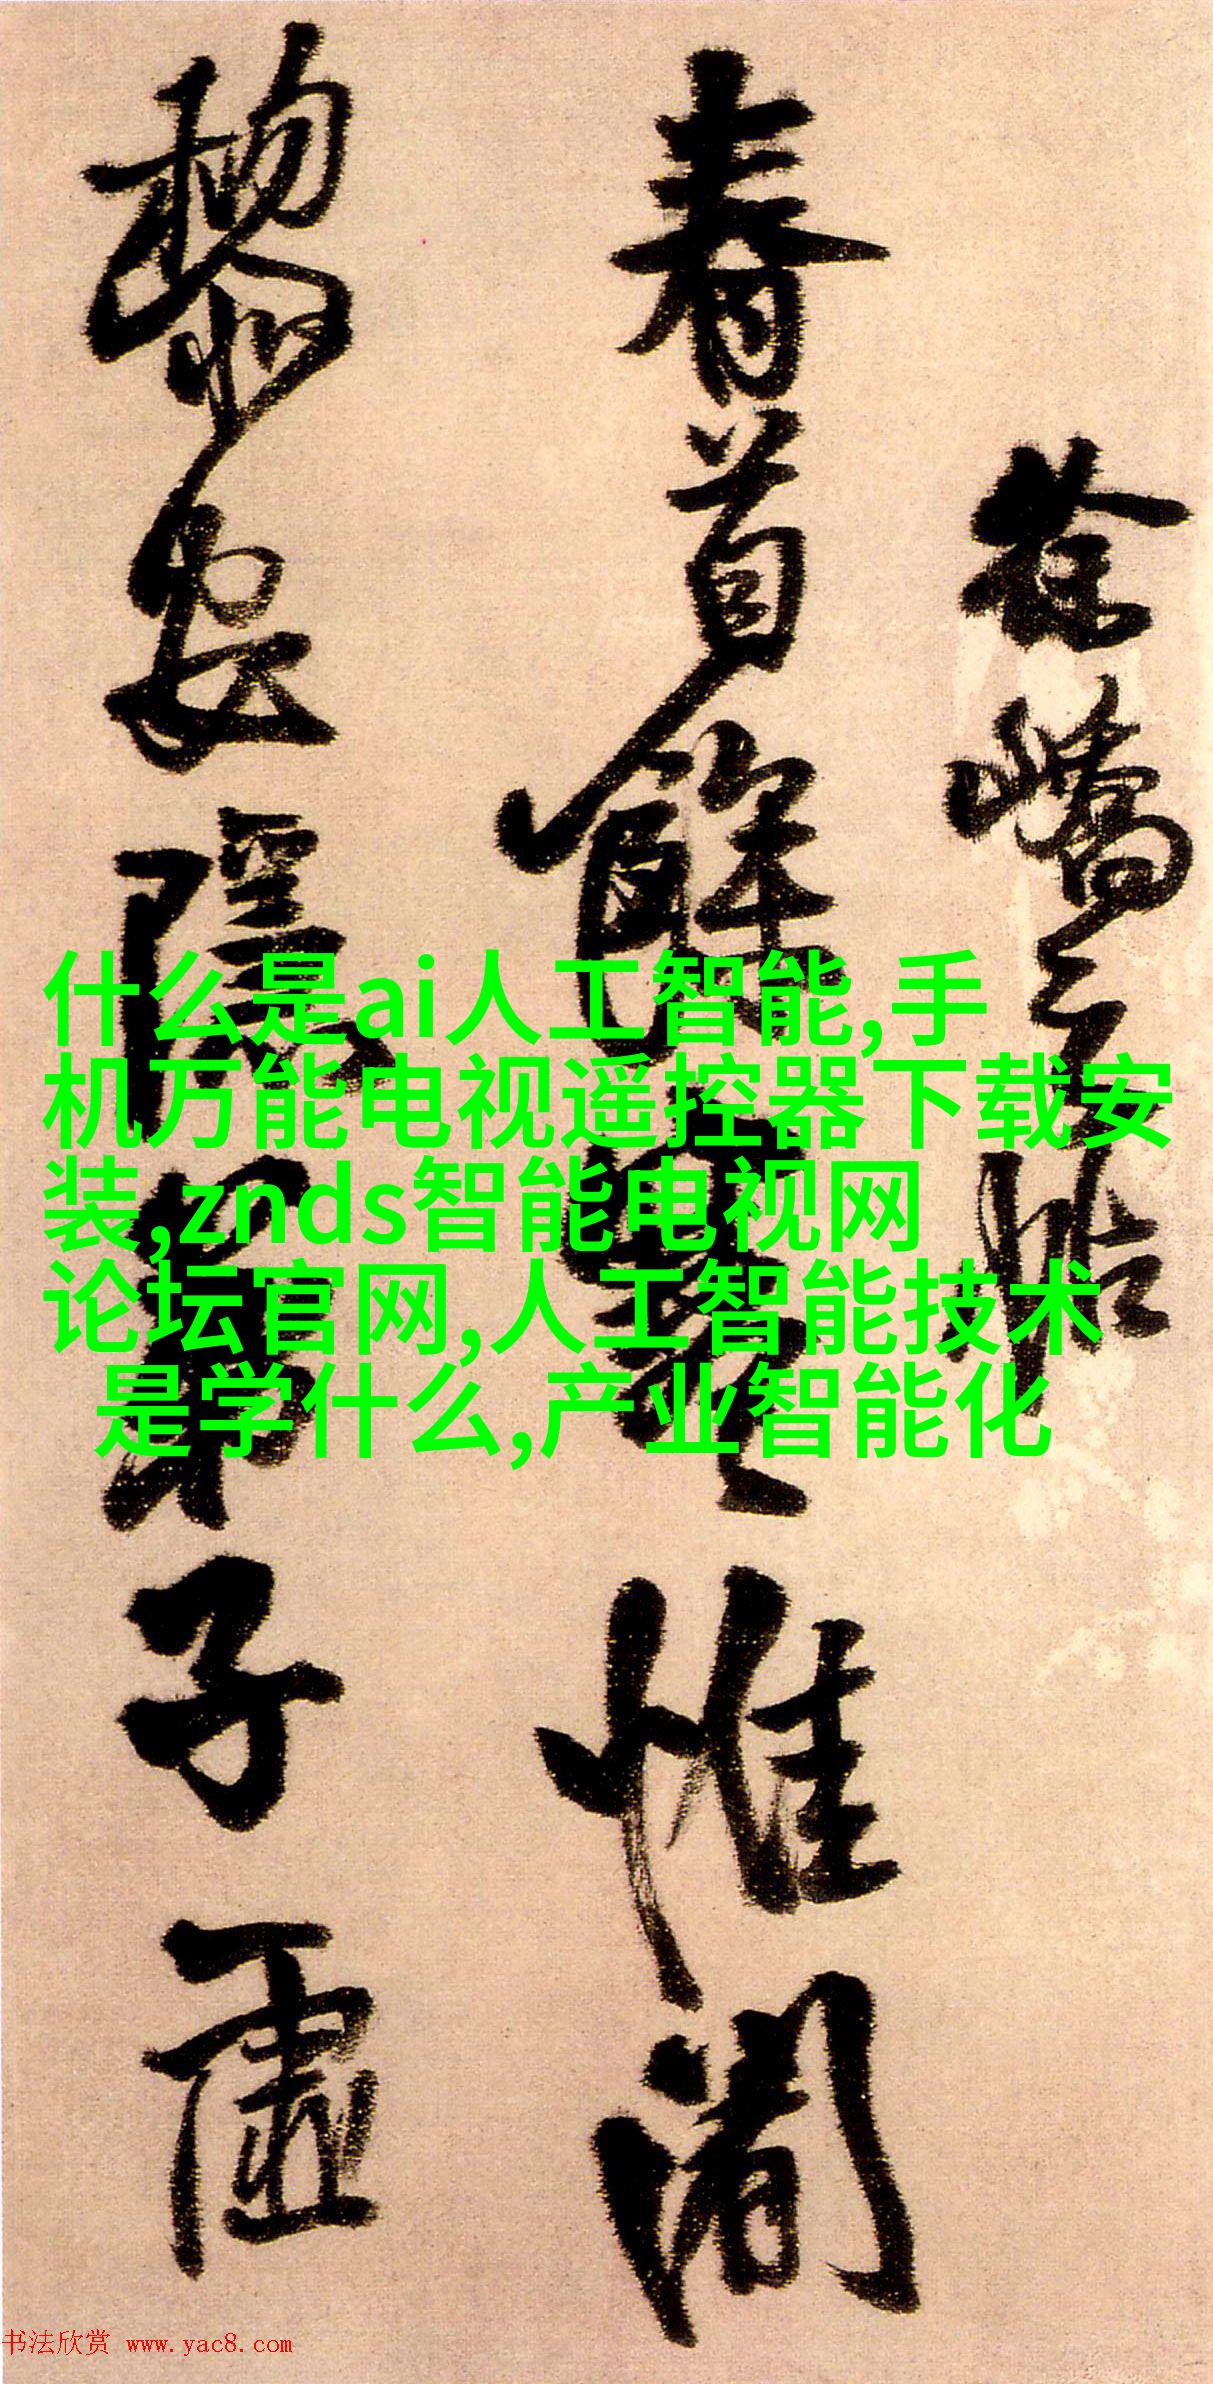 徐峤之帖
春首餘寒惟闍
黎安隱弟子虛
什么是ai人工智能,手
机万能电视遥控器下载安
装,znds智能电视网
论坛官网,人工智能技术
是学什么,产业智能化
书法欣赏 www.yac8.com